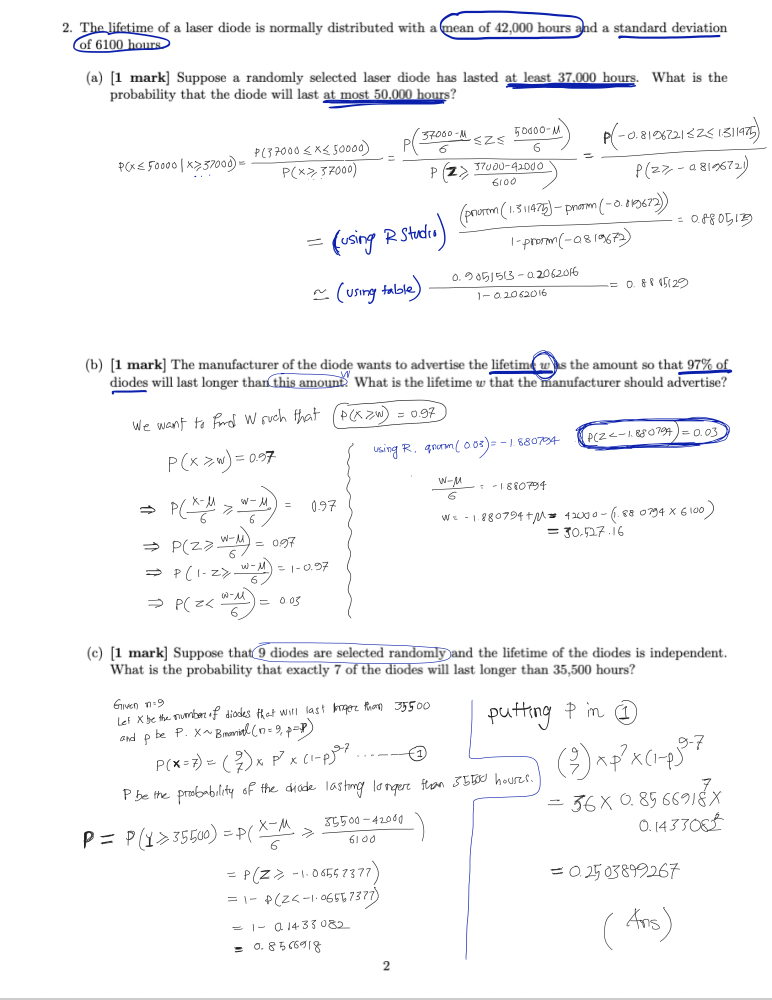 2. The lifetime of a laser diode is normally distributed with a mean of 42,000 hours and a standard deviation
of 6100 hours.
(a) [1 mark] Suppose a randomly selected laser diode has lasted at least 37,000 hours. What is the
probability that the diode will last at most 50,000 hours?
P(X ≤ 50000 | X ≥ 37000) = P(37000 ≤ X ≤ 50000) / P(X ≥ 37000) = P((37000-M)/6 ≤ Z ≤ (50000-M)/6) / P(Z ≥ (37000-42000)/6100) = P(-0.8196721 ≤ Z ≤ 1.311475) / P(Z ≥ -0.8196721)
= (using R Studio) (pnorm(1.311475) - pnorm(-0.819672)) / 1-pnorm(-0.819672) = 0.8805129
≃ (using table) 0.9051513 - 0.2062016 / 1 - 0.2062016 = 0.8805129
(b) [1 mark] The manufacturer of the diode wants to advertise the lifetime w as the amount so that 97% of
diodes will last longer than this amount. What is the lifetime w that the manufacturer should advertise?
W
We want to find W such that P(X ≥ W) = 0.97
P(X ≥ w) = 0.97
⇒ P((X-M)/6 ≥ (w-M)/6) = 0.97
⇒ P(Z ≥ (w-M)/6) = 0.97
⇒ P(1-Z ≥ (w-M)/6) = 1-0.97
⇒ P(Z < (w-M)/6) = 0.03
using R, qnorm(0.03) = -1.880794
P(Z < -1.880794) = 0.03
(W-M)/6 = -1.880794
W = -1.880794 + M = 42000 - (1.880794 × 6100)
= 30.527.16
(c) [1 mark] Suppose that 9 diodes are selected randomly and the lifetime of the diodes is independent.
What is the probability that exactly 7 of the diodes will last longer than 35,500 hours?
Given n=9
Let X be the number of diodes that will last longer than 35500
and p be P. X ~ Binomial(n=9, p=P)
P(X=7) = (9 7) × p^7 × (1-p)^9-7 ------- ①
P be the probability of the diode lasting longer than 35500 hours.
P = P(Y ≥ 35500) = P((X-M)/6 ≥ (35500-42000)/6100)
= P(Z ≥ -1.06557377)
= 1 - P(Z < -1.06557377)
= 1 - 0.1433082
= 0.8566918
putting P in ①
(9 7) × p^7 × (1-p)^9-7
= 36 × 0.8566918^7 ×
0.1433082^2
= 0.2503899267
(Ans)
2